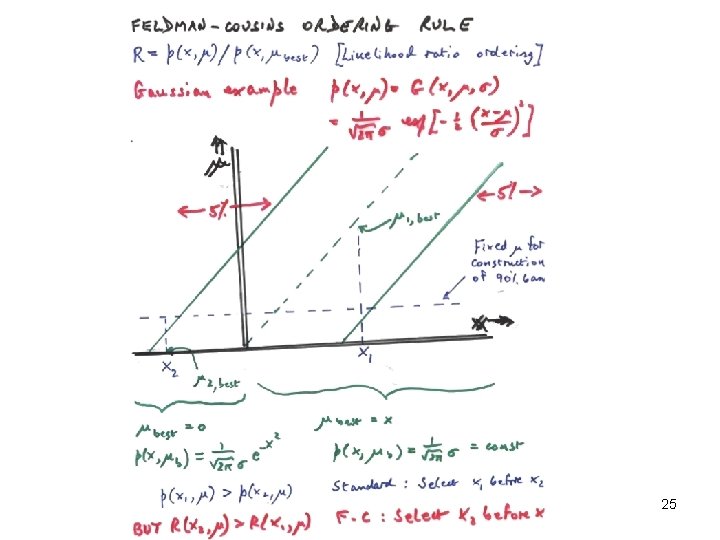 FELDMAN-COUSINS ORDERING RULE
R = p(x,μ)/p(x,μbest) [Likelihood ratio ordering]
Gaussian example p(x,μ) = G(x,μ,σ)
= 1/√2π σ exp[-½ (x-μ/σ)²]
μ
← 5% →
← 5% →
μ1,best
Fixed μ for
construction
of 90% ban
x
x2
x1
μ2,best
μbest = 0
μbest = x
p(x,μb) = 1/√2π σ e^-x²
p(x,μb) = 1/√2π σ = const
p(x1,μ) > p(x2,μ)
Standard : Select x1 before x2
BUT R(x2,μ) > R(x1,μ)
F.C : Select x2 before x
25